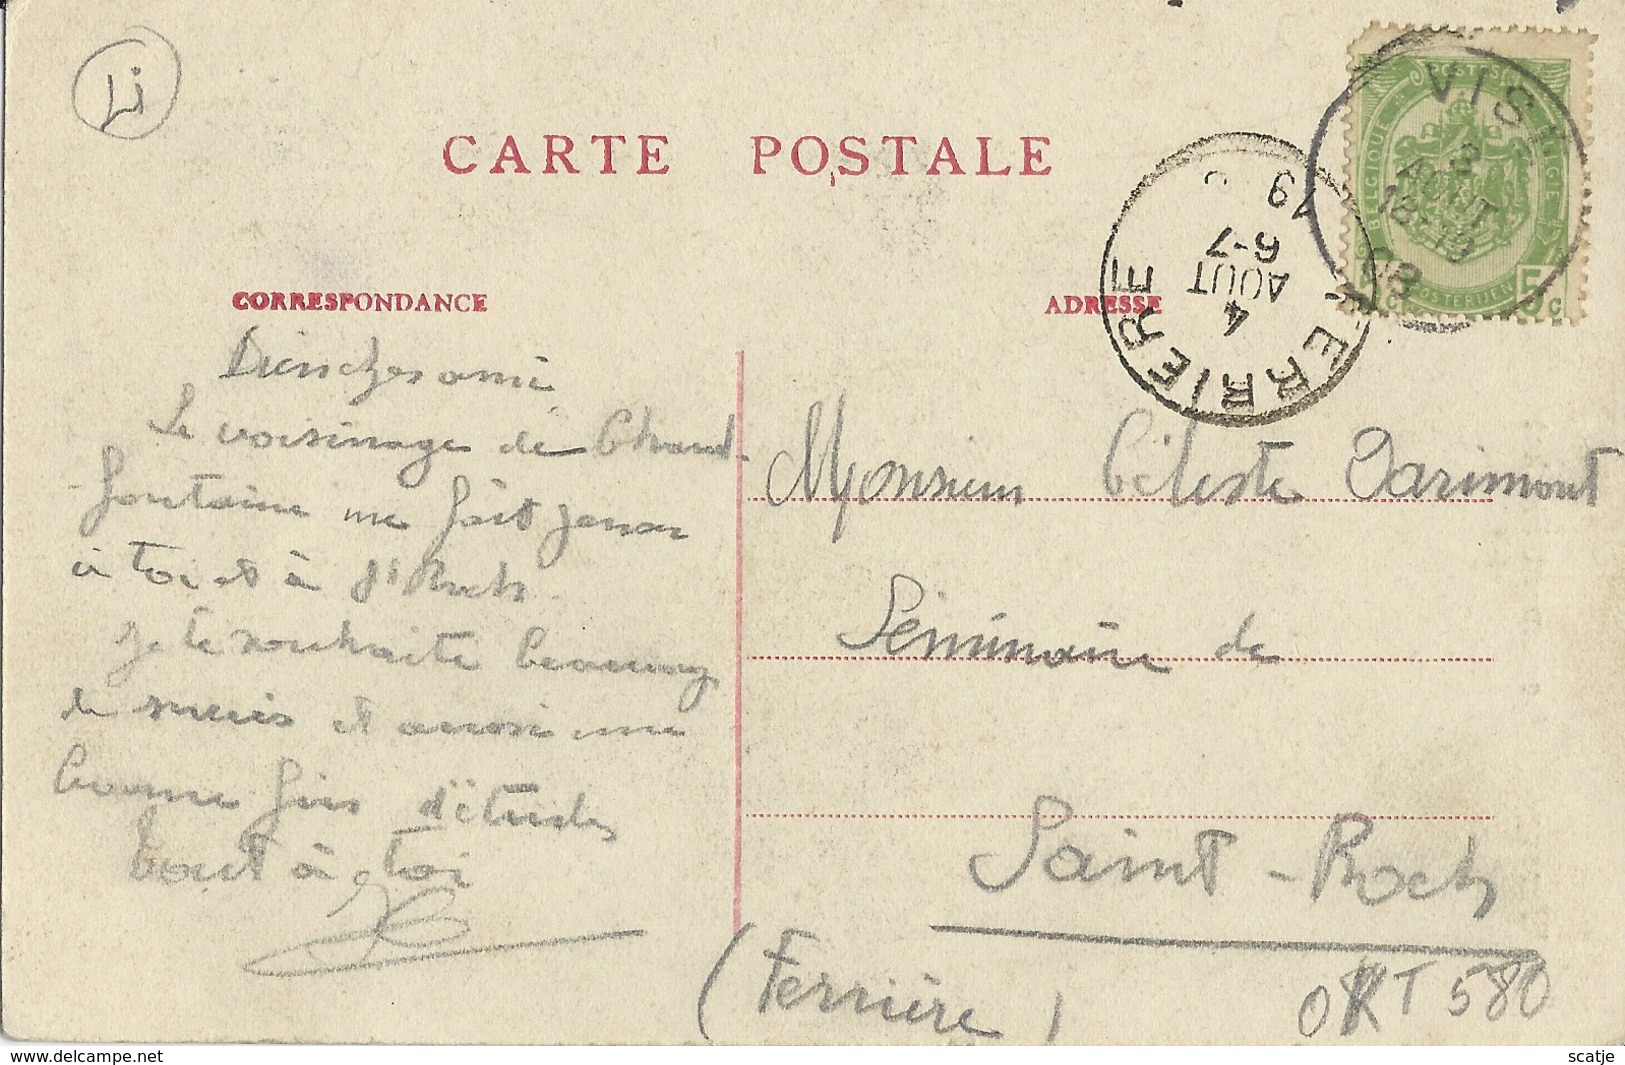 Li
CARTE POSTALE
CORRESPONDANCE
ADRESSE
BELGIQUE
POSTERIJEN
5 c
VISÉ
3
AOUT
18-19
08
FERRIERE
4
AOUT
6-7
19
Bien cher ami
Le voisinage de Chaud-
-fontaine me fait penser
à toi et à St Roch
Je te souhaite beaucoup
de succès et aussi une
bonne fin d'études
tout à toi
Monsieur Céleste Darimont
Séminaire de
Saint-Roch
(Ferrière)
OKT 580
scatje